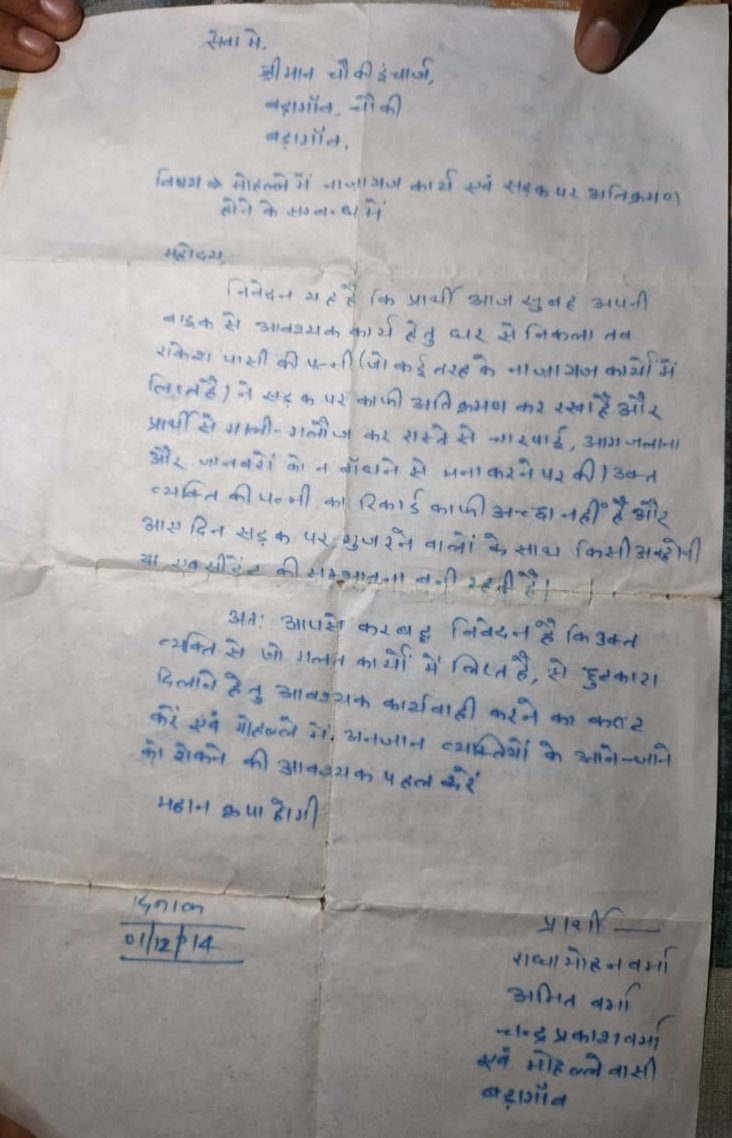 सेवा मे,
श्रीमान चौकी इंचार्ज,
बड़ागाँव, चौकी
बड़ागाँव,
विषय मोहल्ले में नाजायज कार्य एवं सड़क पर अतिक्रमण
होने के सम्बन्ध में
महोदय,
निवेदन यह है कि प्रार्थी आज सुबह अपनी
बाइक से आवश्यक कार्य हेतु घर से निकला तब
राकेश पासी की पत्नी (जो कई तरह के नाजायज कार्यो में
लिप्त है) ने सड़क पर काफी अतिक्रमण कर रखा है और
प्रार्थी से गाली-गलौज कर रास्ते से चारपाई, आग जलाना
और जानवरों को न बाँधने से मना करने पर की। उक्त
व्यक्ति की पत्नी का रिकार्ड काफी अच्छा नहीं है और
आए दिन सड़क पर गुजरने वालों के साथ किसी अनहोनी
या एक्सीडेंट की सम्भावना बनी रहती है।
अतः आपसे करबद्ध निवेदन है कि उक्त
व्यक्ति से जो गलत कार्यो में लिप्त है, से छुटकारा
दिलाने हेतु आवश्यक कार्यवाही करने का कष्ट
करें एवं मोहल्ले में अनजान व्यक्तियों के आने-जाने
को रोकने की आवश्यक पहल करें
महान कृपा होगी
दिनांक
01/12/14
प्रार्थी —
राधा मोहन वर्मा
अमित वर्मा
चन्द्र प्रकाश वर्मा
एवं मोहल्ले वासी
बड़ागाँव